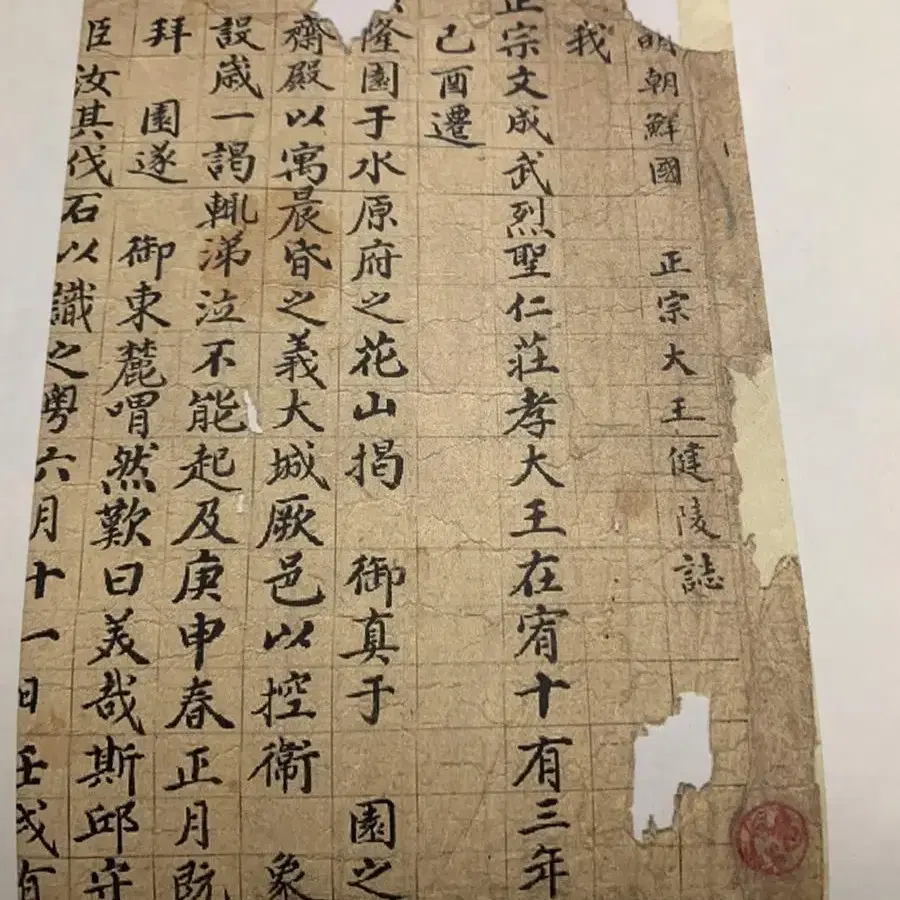 明朝鮮國 正宗大王健陵誌
我
正宗文成武烈聖仁莊孝大王在宥十有三年
己酉遷
隆園于水原府之花山揭 御真于 園之
齋殿以寓晨昏之義大城厥邑以控衞 象
設歲一謁輒涕泣不能起及庚申春正月既
拜 園遂 御東麓喟然歎曰美哉斯邱守
臣汝其伐石以識之粤六月十一日